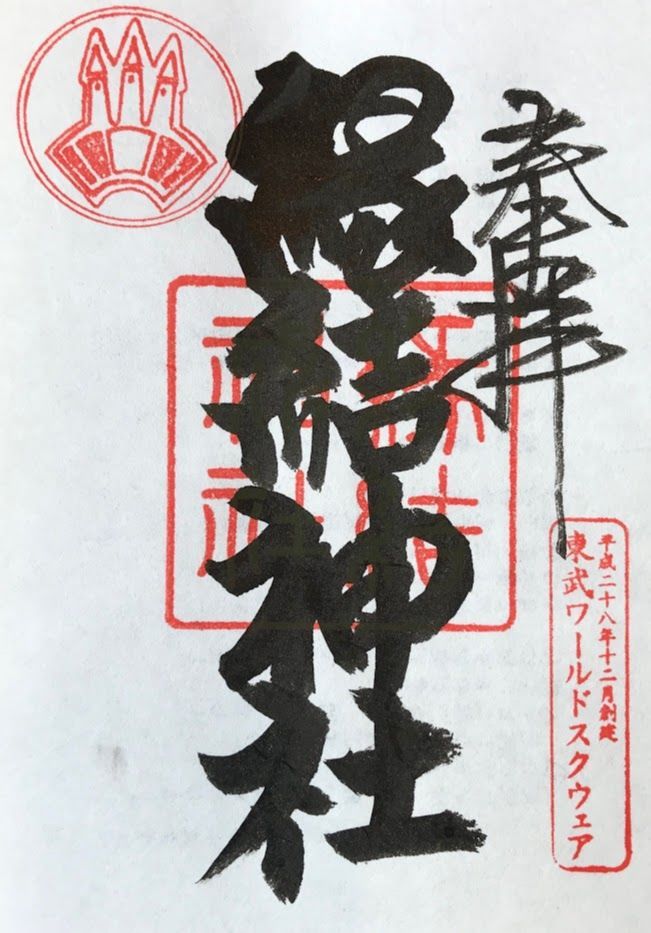 奉拝
縁結神社
縁結
神社
平成二十八年十二月創建
東武ワールドスクウェア